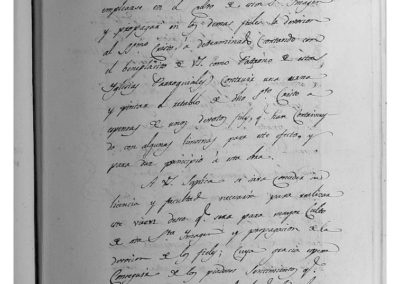 emplearse en el culto de esta S.ta Imagen
y propagar en los demas fieles la devocion
al S.smo Cristo, a determinado, contando con
el beneplacito de V. como Patrono de estas
Yglesias Parroquiales, Costruir una mesa
y pintar el retablo de dho S.to Cristo a
expensas de unos devotos fieles, q.e han contribui
do con algunas limosnas para este efecto, y
para dar principio a esta obra.
A V. Suplica se sirva conceder su
licencia y facultad necesaria para realizar
este deseo q.e sera para mayor Culto
de esta S.ta Imagen y propagacion de la
devocion de los fieles; Cuya gracia espera
Conseguir de los piadosos Sentimientos q.e